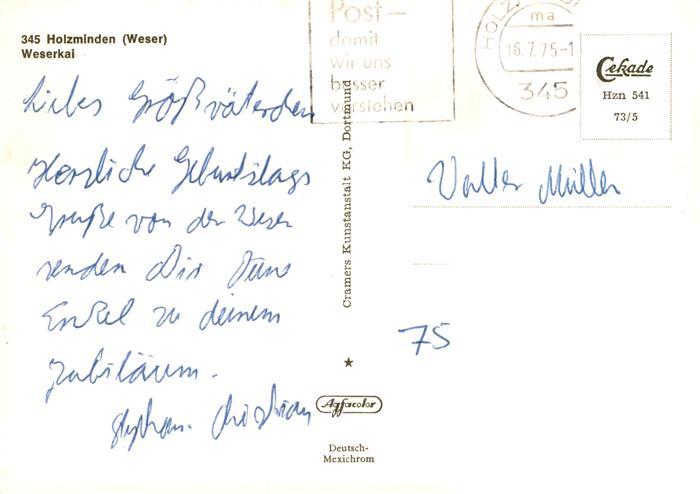 345 Holzminden (Weser)
Weserkai
Post–
damit
wir uns
besser
verstehen
HOLZ
ma
16.7.75-1
345
Cekade
Hzn 541
73/5
Liebes Großväterchen
Herzliche Geburtstags
Grüße von der Weser
senden Dir Deine
Enkel zu deinem
Jubiläum.
Stephan. Christian
Cramers Kunstanstalt KG, Dortmund
Agfacolor
Deutsch-
Mexichrom
Müller
75